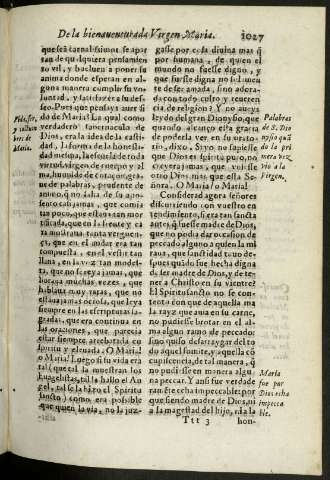 De la bienauenturada Virgen Maria. 1027
que será tarnalissimos se apar
tan de qualquiera pensamien
to vil, y bueluen a poner su
anima donde esperan en al-
guna manera cumplir su vo-
luntad, y satisfazer a su de-
seo. Pues que pensays auer si
do de Maria? La qual como
verdadero tabernaculo de
Dios, era la idea de la casti-
dad, la forma de la honesti-
dad mesma, la señal de toda
virtud, virgen de cuerpo y al-
ma, humilde de coraçon, gra-
ue de palabras, prudente de
animo, que no salia de su apo-
sento cabizbaxa, que comia
tan poco, que estaua tan mor
tificada, que en la frente y ca
ra mostraua tanta verguen-
ça, que en el andar era tan
compuesta, en el vestir tan
llana, en la voz tan modes-
ta, que no se reya jamas, que
lloraua muchas vezes, que
hablaua muy raras, que no
estaua jamas ociosa, que leya
siempre en las escripturas sa-
gradas, que era continua en
las oraciones, que parecia
estar siempre arrebatada cu
spiritu y eleuada. O Maria!
o Maria! Luego si su vida era
tal (que tal la muestran los
Euangelistas, tal la hallo el An
gel, tal se la hizo el Spiritu
sancto) como era possible
que quien la via, no la juz-
Pide, ser,
y cultura
bers de
Maria.
gasse por cosa diuina mas que
por humana, de quien el
mundo no fuesse digno, y
que fuesse digna no solamen
te de ser amada, sino adora-
da con todo culto y reueren
cia de religion? Y no auia
leydo del gran Dionysio, que
quando alcançò esta gracia
de poderla ver en su orato-
rio, dixo, Si yo no supiesse
que Dios es spiritu puro, no
creyera jamas, que vuiesse
otro Dios mas que esta Se-
ñora. O Maria! o Maria!
Considerad agora señores
discurriendo con vuestro en
tendimiento, si era tan sancta
antes, que fuesse madre de Dios,
que no podia dar ocasion de
peccado alguno a quien la mi
raua, que sanctidad tuuo de-
spues quando fue hecha digna
de ser madre de Dios, y de te-
ner a Christo en su vientre?
El Spiritu sancto no se con-
tento con que de aquella ma
la rayz que auia en su carne,
no pudiesse brotar en el al-
ma algun ramo de peccado:
sino quiso desarraygar del to
do aquel fomite, y aquella co
cupiscencia de tal manera, que
no pudiesse en manera algu-
na peccar. Y ansi fue verdade
ramente hecha impeccable: por
que siendo madre de Dios, ni
a la magestad del hijo, ni a la
Palabras
de S. Dio
nysio quā
do la pri
mera vez
vio a la
Virgen.
Maria
fue por
Dios echa
impecca
ble.
Ttt 3 hon-